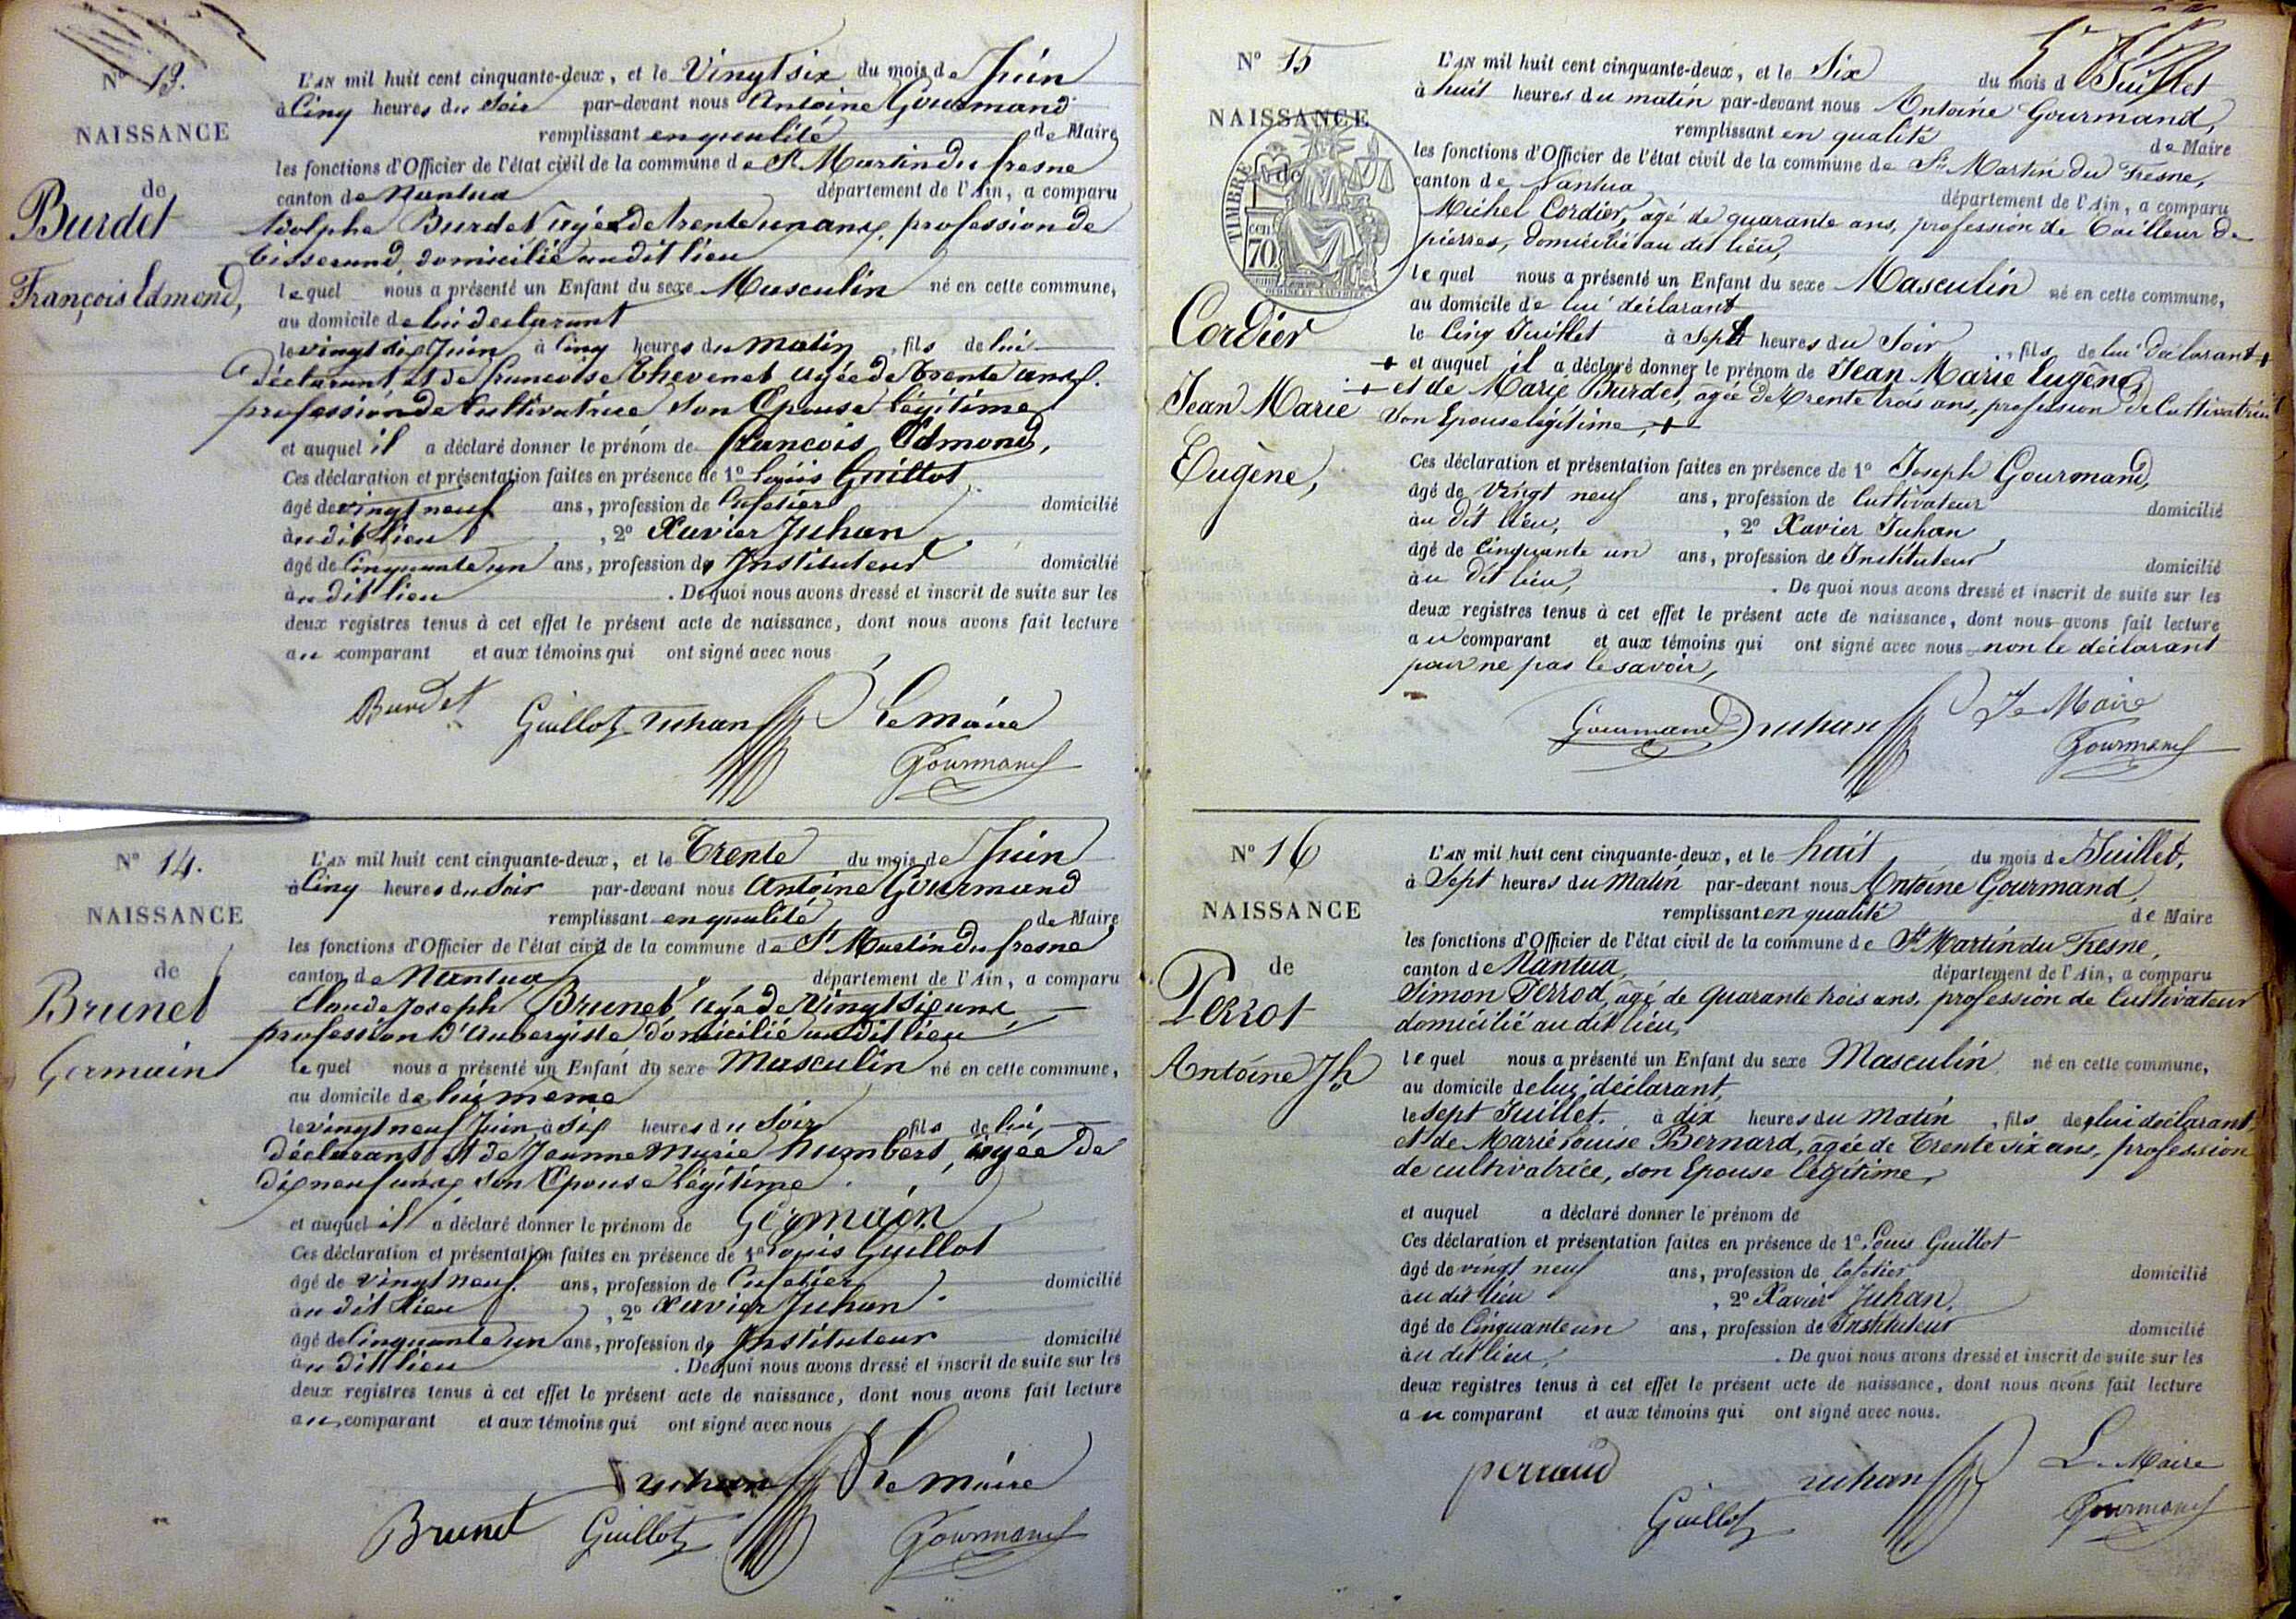 N° 13.
NAISSANCE
de
Burdet
François Edmond,
L'AN mil huit cent cinquante-deux, et le Vingt six du mois de Juin
à Cinq heures du Soir par-devant nous Antoine Gourmand
remplissant en qualité de Maire
les fonctions d'Officier de l'état civil de la commune de St Martin du fresne
canton de Nantua département de l'Ain, a comparu
Adolphe Burdet agée de trente un ans, profession de
tisserand, domicilié au dit lieu
lequel nous a présenté un Enfant du sexe Masculin né en cette commune,
au domicile de lui declarant
le vingt six Juin à Cinq heures du matin, fils de lui
déclarant et de francoise Thevenet agée de Trente ans.
profession de Cultivatrice son Epouse légitime
et auquel il a déclaré donner le prénom de francois Edmond,
Ces déclaration et présentation faites en présence de 1° Louis Guillot
âgé de vingt neuf ans, profession de Cafetier domicilié
au dit lieu, 2° Xavier Juhan
âgé de Cinquante un ans, profession de Instituteur domicilié
au dit lieu. De quoi nous avons dressé et inscrit de suite sur les
deux registres tenus à cet effet le présent acte de naissance, dont nous avons fait lecture
au comparant et aux témoins qui ont signé avec nous
Burdet Guillot Juhan Le maire
Gourmand
N° 14.
NAISSANCE
de
Brunet
Germain
L'AN mil huit cent cinquante-deux, et le Trente du mois de Juin
à Cinq heures du Soir par-devant nous Antoine Gourmand
remplissant en qualité de Maire
les fonctions d'Officier de l'état civil de la commune de St Martin du fresne
canton de Nantua département de l'Ain, a comparu
Claude Joseph Brunet, agé de Vingt six ans
profession d'Aubergiste domicilié au dit lieu
lequel nous a présenté un Enfant du sexe Masculin né en cette commune,
au domicile de lui meme
le vingt neuf Juin à Six heures du Soir fils de lui,
déclarant et de Jeanne Marie humbert, agée de
dix neuf ans, son Epouse légitime
et auquel il a déclaré donner le prénom de Germain
Ces déclaration et présentation faites en présence de 1° Louis Guillot
âgé de vingt neuf ans, profession de Cafetier domicilié
au dit lieu, 2° Xavier Juhan
âgé de Cinquante un ans, profession de Instituteur domicilié
au dit lieu. De quoi nous avons dressé et inscrit de suite sur les
deux registres tenus à cet effet le présent acte de naissance, dont nous avons fait lecture
au comparant et aux témoins qui ont signé avec nous
Juhan Le maire
Brunet Guillot Gourmand
N° 15
NAISSANCE
de
TIMBRE
cen
70
Cordier
Jean Marie
Eugène,
L'AN mil huit cent cinquante-deux, et le Six du mois d Juillet
à huit heures du matin par-devant nous Antoine Gourmand,
remplissant en qualité de Maire
les fonctions d'Officier de l'état civil de la commune de St Martin du Fresne,
canton de Nantua département de l'Ain, a comparu
Michel Cordier, agé de quarante ans, profession de Tailleur de
pierres, domicilié au dit lieu,
lequel nous a présenté un Enfant du sexe Masculin né en cette commune,
au domicile de lui déclarant
le Cinq Juillet à Sept heures du Soir, fils de lui déclarant +
+ et auquel il a déclaré donner le prénom de Jean Marie Eugène,
+ et de Marie Burdet, agée de trente trois ans, profession de Cultivatrice
son Epouse légitime, +
Ces déclaration et présentation faites en présence de 1° Joseph Gourmand,
âgé de vingt neuf ans, profession de Cultivateur domicilié
au dit lieu, 2° Xavier Juhan,
âgé de Cinquante un ans, profession de Instituteur domicilié
au dit lieu, . De quoi nous avons dressé et inscrit de suite sur les
deux registres tenus à cet effet le présent acte de naissance, dont nous avons fait lecture
au comparant et aux témoins qui ont signé avec nous non le déclarant
pour ne pas le savoir,
Gourmand Juhan Le Maire
Gourmand
N° 16
NAISSANCE
de
Perrot
Antoine Jh
L'AN mil huit cent cinquante-deux, et le huit du mois de Juillet,
à Sept heures du Matin par-devant nous Antoine Gourmand,
remplissant en qualité de Maire
les fonctions d'Officier de l'état civil de la commune de St Martin du Fresne,
canton de Nantua, département de l'Ain, a comparu
Simon Perrod, agé de quarante trois ans, profession de Cultivateur
domicilié au dit lieu,
lequel nous a présenté un Enfant du sexe Masculin né en cette commune,
au domicile de lui déclarant,
le sept Juillet. à dix heures du Matin, fils de lui déclarant,
et de Marie Louise Bernard, agée de Trente six ans, profession
de cultivatrice, son Epouse légitime,
et auquel a déclaré donner le prénom de
Ces déclaration et présentation faites en présence de 1° Louis Guillot
âgé de vingt neuf ans, profession de Cafetier domicilié
au dit lieu, 2° Xavier Juhan,
âgé de Cinquante un ans, profession de Instituteur domicilié
au dit lieu, . De quoi nous avons dressé et inscrit de suite sur les
deux registres tenus à cet effet le présent acte de naissance, dont nous avons fait lecture
au comparant et aux témoins qui ont signé avec nous.
perraud Juhan Le Maire
Guillot Gourmand